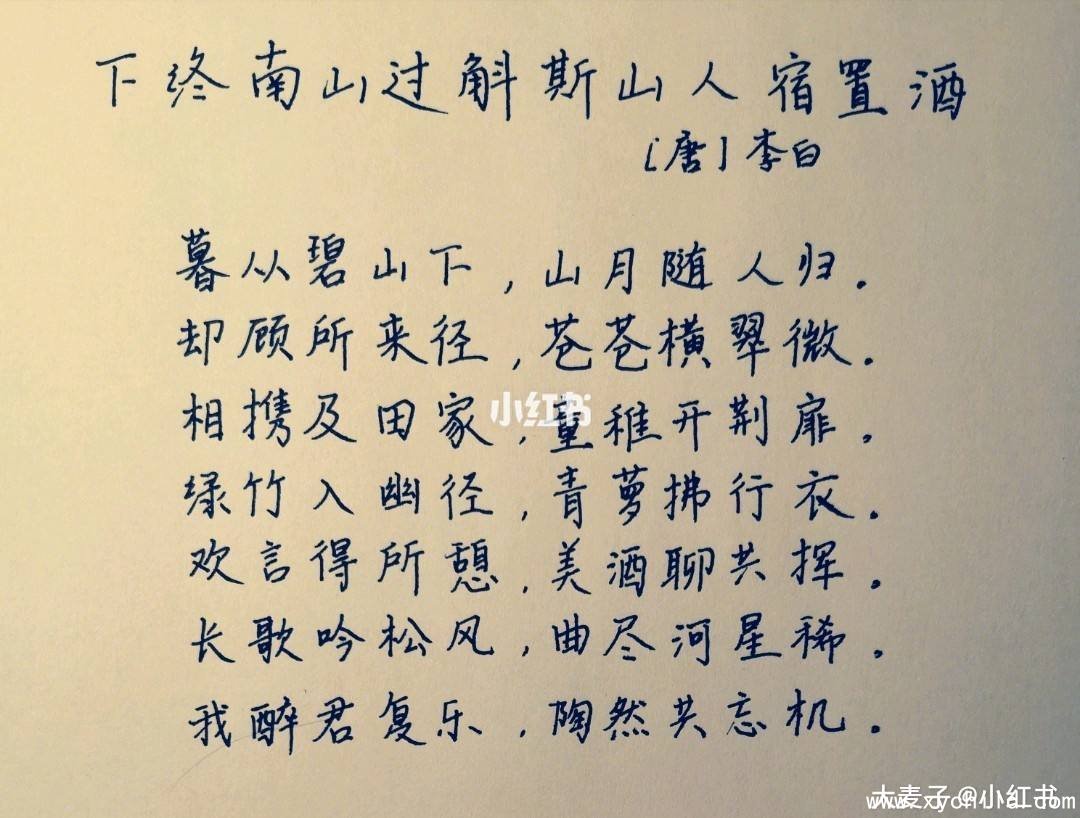 下终南山过斛斯山人宿置酒
[唐]李白
暮从碧山下，山月随人归。
却顾所来径，苍苍横翠微。
相携及田家，童稚开荆扉。
小红书
绿竹入幽径，青萝拂行衣。
欢言得所憩，美酒聊共挥。
长歌吟松风，曲尽河星稀。
我醉君复乐，陶然共忘机。
大麦子@小红书